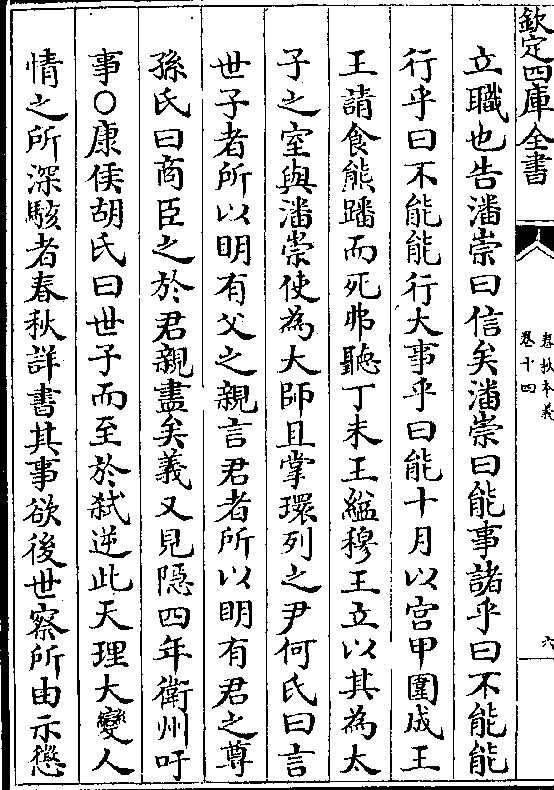 欽定四庫全書
春秋本義
卷十四
六
立職也告潘崇曰信矣潘崇曰能事諸乎曰不能能
行乎曰不能能行大事乎曰能十月以宮甲圍成王
王請食熊蹯而死弗聽丁未王縊穆王立以其為太
子之室與潘崇使為大師且掌環列之尹何氏曰言
世子者所以明有父之親言君者所以明有君之尊
孫氏曰商臣之於君親盡矣義又見隱四年衛州吁
事○康侯胡氏曰世子而至於弑逆此天理大變人
情之所深駭者春秋詳書其事欲後世察所由示懲